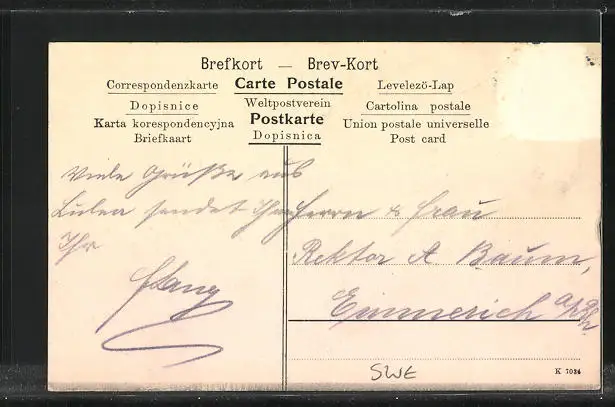 Brefkort — Brev-Kort
Correspondenzkarte Carte Postale Levelezö-Lap
Dopisnice Weltpostverein Cartolina postale
Karta korespondencyjna Postkarte Union postale universelle
Briefkaart Dopisnica Post card
Viele Grüße aus
Lulea sendet Ihnen
Ihr
Herrn & Frau
Rektor A Baum,
Emmerich a/Rh
SWE
K 7034